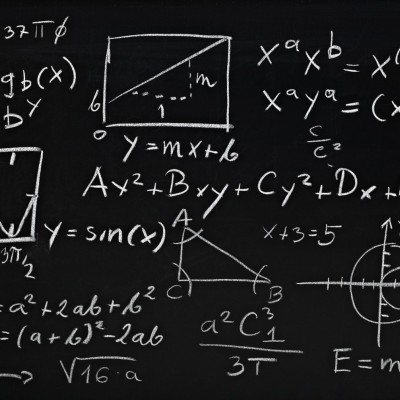 37πφ
gb(x)
b^y
b
m
1
0
y=mx+b
x^a x^b = x^(
x^a y^a = (x
c/c²
Ax²+Bxy+Cy²+Dx+
3π/2
y=sin(x)
A
C
B
x+3=5
= a²+2ab+b²
=(a+b)²-2ab
→ √16·a
a²C₁³/3T
E=m